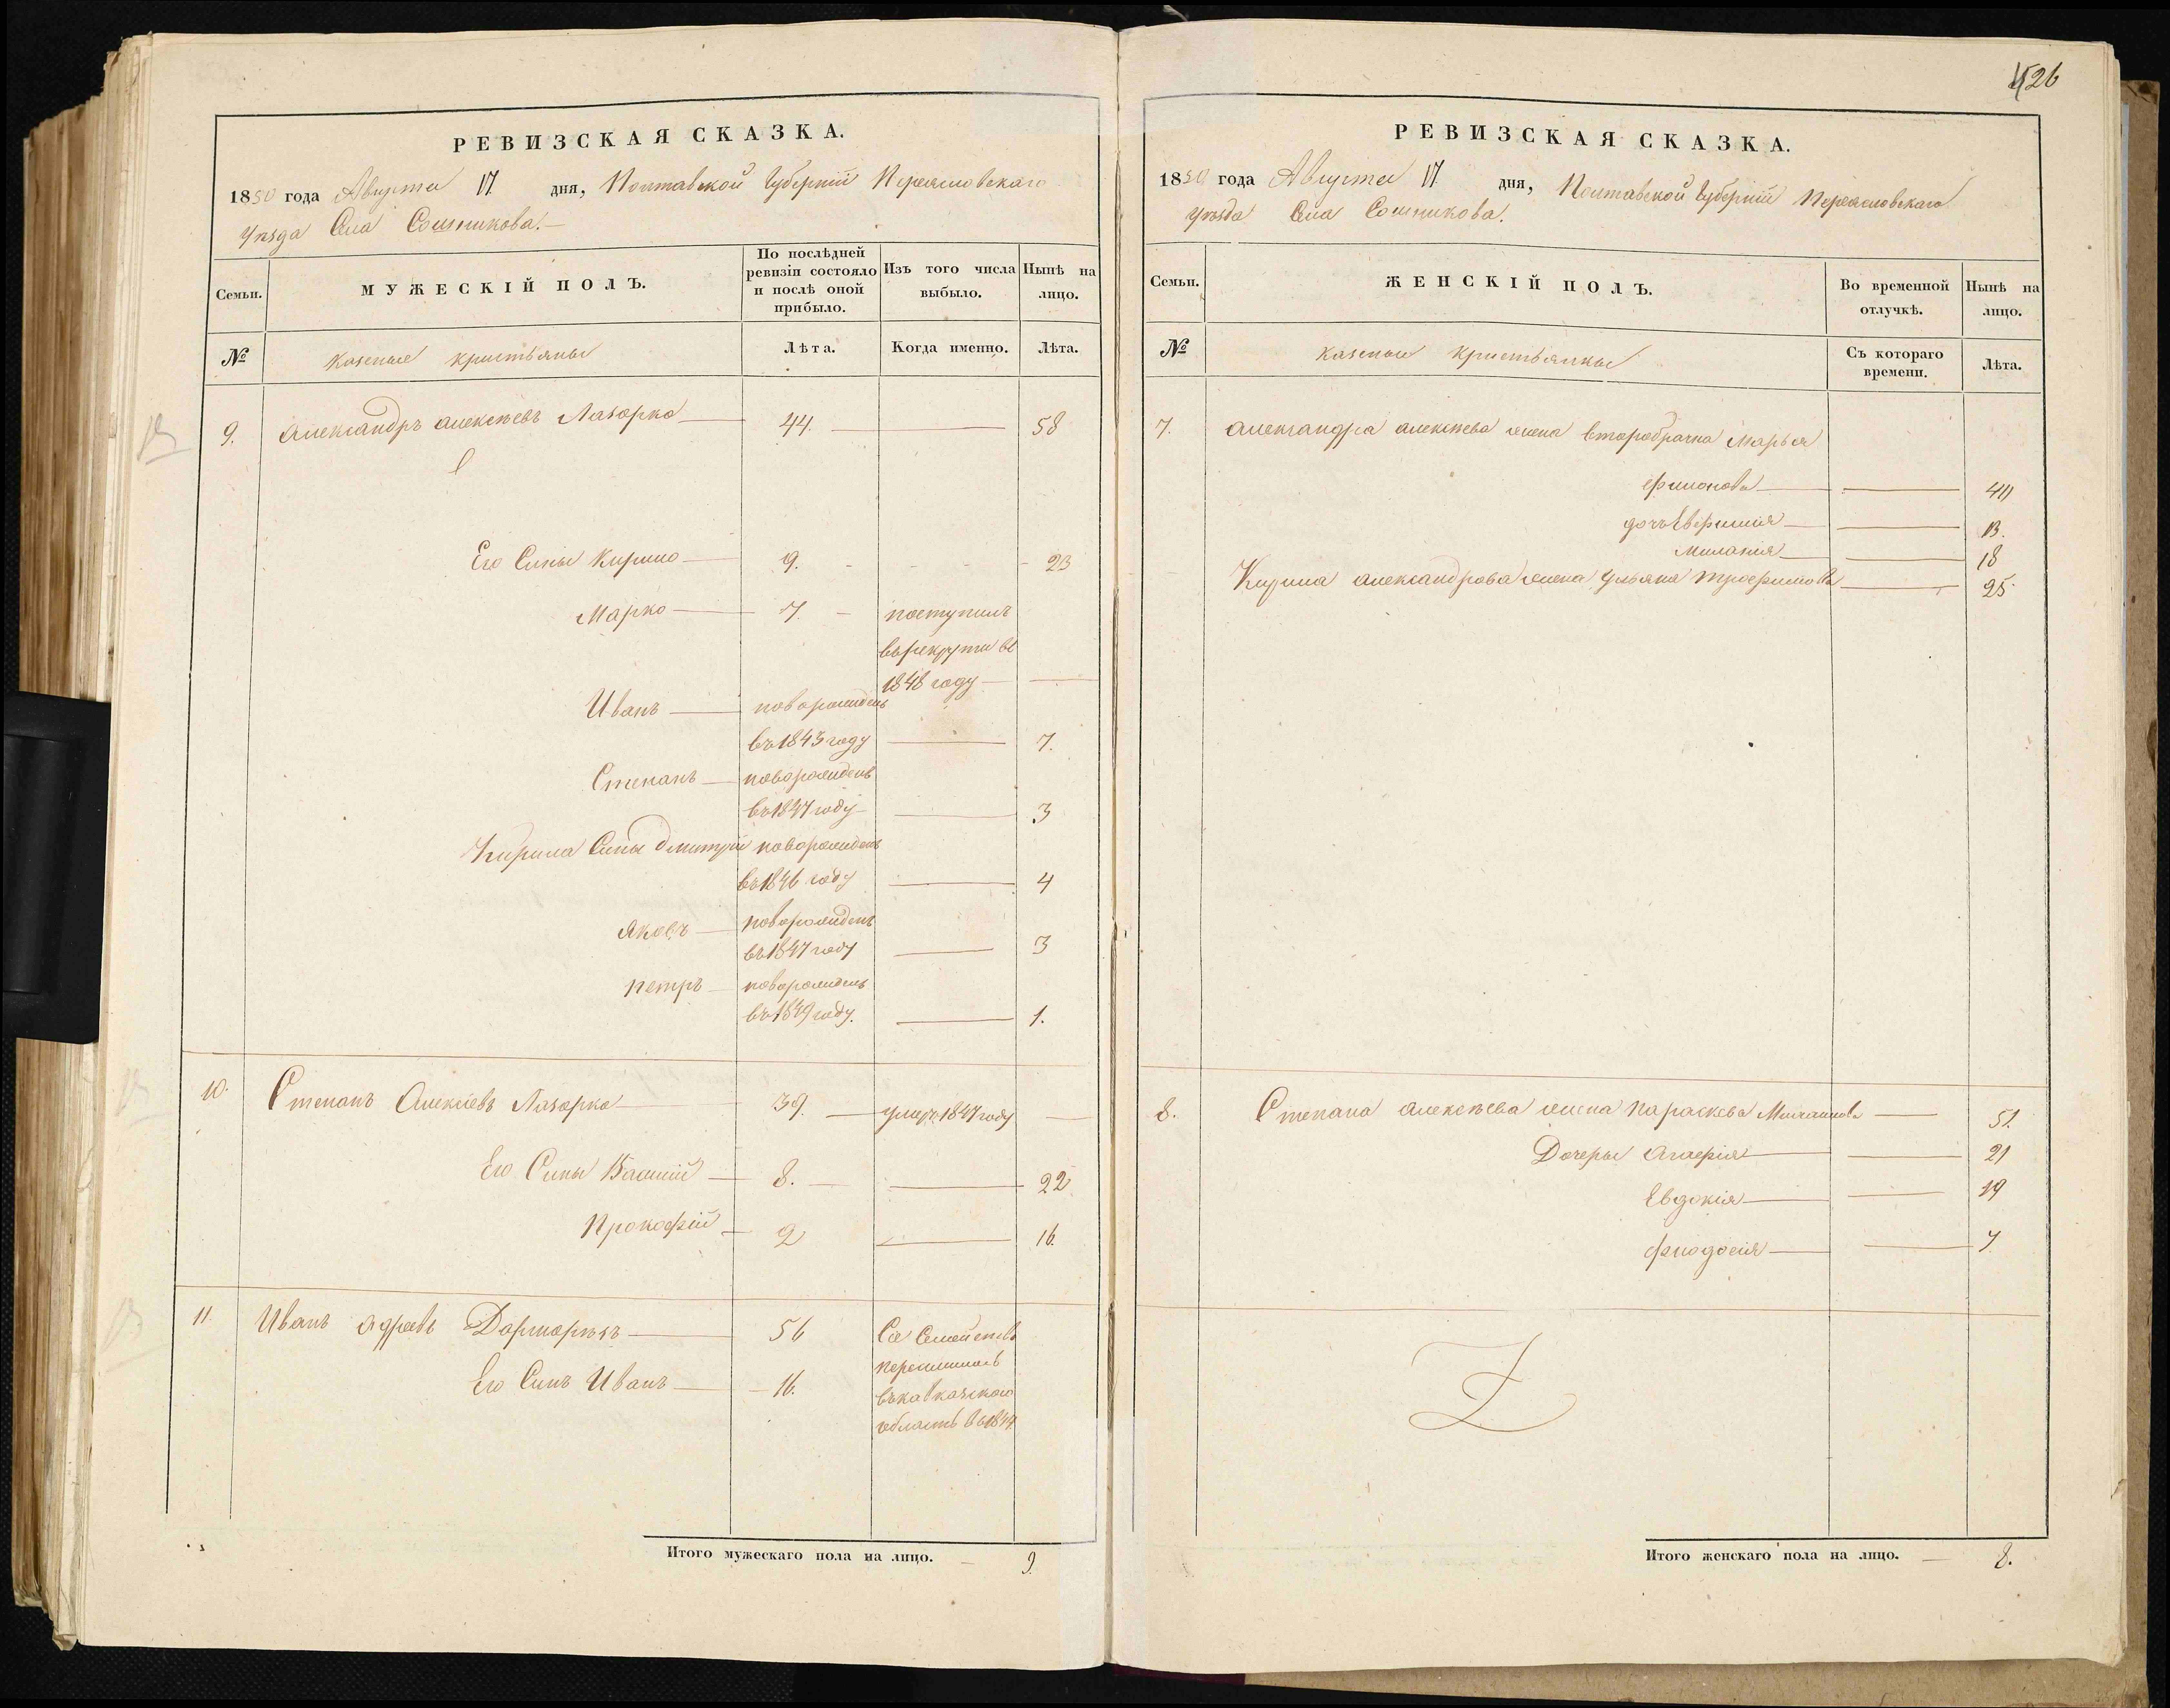 426
РЕВИЗСКАЯ СКАЗКА.
1850 года Августа 17 дня, Полтавской Губерніи Переясловскаго
Уѣзда Села Сошникова.
Семьи. МУЖЕСКІЙ ПОЛЪ. По послѣдней ревизіи состояло и послѣ оной прибыло. Изъ того числа выбыло. Нынѣ на лицо.
№ казеные кристьяны Лѣта. Когда именно. Лѣта.
9. Александръ Алексѣевъ Лазорко 44. 58
Его Сины Кирило 9. 23
Марко 7. поступилъ
въ рекруты въ
1848 году
Иванъ новорожденъ
въ 1843 году 7.
Степанъ новорожденъ
въ 1847 году 3
Кирила Сины Дмитрій новорожденъ
въ 1846 году 4
Яковъ новорожденъ
въ 1847 году 3
Петръ новорожденъ
въ 1849 году. 1.
10. Степанъ Алексѣевъ Лазорко 39. умеръ 1847 году
Его Сины Василій 8. 22
Прокофій 2 16.
11. Иванъ Адреевъ 56 Съ Семейством
Его Синъ Иванъ 16. переселились
въ кавказскую
область въ 1844
Итого мужескаго пола на лицо. 9.
РЕВИЗСКАЯ СКАЗКА.
1850 года Августа 17 дня, Полтавской Губерніи Переясловскаго
Уѣзда Села Сошникова.
Семьи. ЖЕНСКІЙ ПОЛЪ. Во временной отлучкѣ. Нынѣ на лицо.
№ казеные кристьянкы Съ котораго времени. Лѣта.
7. Александра Алексѣева жена второбрачна Марья
Филонова
дочь Евфимія 13.
Миланія 18
Кирила Александрова жена Ульяна Трофимова 25.
8. Степана Алексѣева жена Параскева 51.
Дочеры Агафія 21
Евдокія 19
Фиодосія 7.
Z
Итого женскаго пола на лицо. 8.